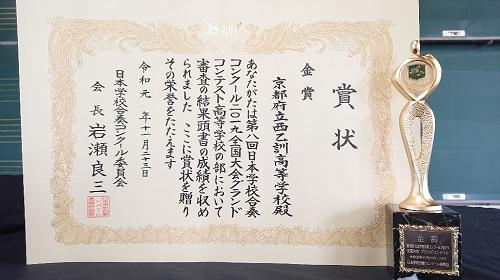 賞状
金賞
京都府立西乙訓高等学校殿
あなたがたは第八回日本学校合奏
コンクール二〇一九全国大会グランド
コンテスト高等学校の部において
審査の結果頭書の成績を収め
られました ここに賞状を贈り
その栄誉をたたえます
令和元年十一月二十三日
日本学校合奏コンクール委員会
会長 岩瀬良三
金賞